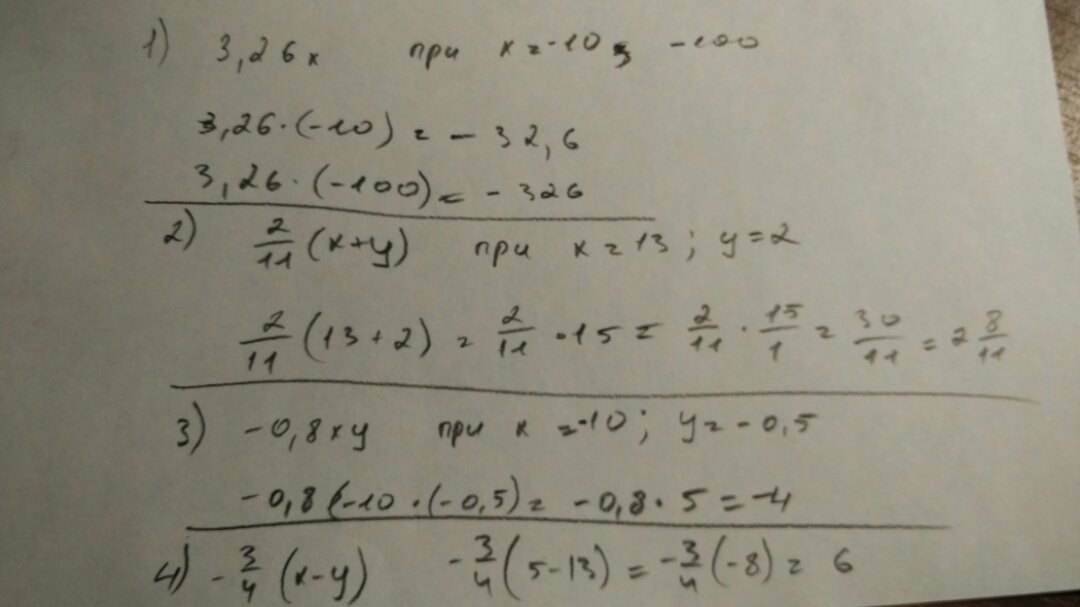 1) 3,26x при x=-10; -100
3,26·(-10) = - 32,6
3,26·(-100) = - 326
2) 2/11 (x+y) при x=13; y=2
2/11 (13+2) = 2/11 · 15 = 2/11 · 15/1 = 30/11 = 2 8/11
3) -0,8xy при x=-10; y=-0,5
-0,8(-10·(-0,5) = -0,8·5 = -4
4) -3/4 (x-y) -3/4 (5-13) = -3/4 (-8) = 6